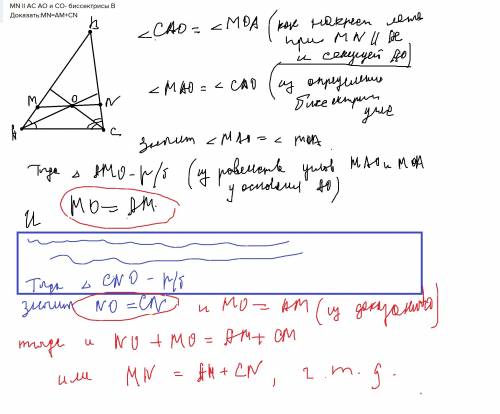 MN II AC АО и СО- биссектрисы В
Доказать:MN=AM+CN
B
M O N
A C
∠CAO = ∠MOA (как накрест леж
при MN || AC
и секущей AO)
∠MAO = ∠CAO (из определения
биссектрисы
угла
значит ∠MAO = ∠MOA.
Тогда △ AMO - р/б (из равенства углов MAO и MOA
у основания AO)
и MO = AM
Тогда △ CNO - р/б
значит NO = CN и MO = AM (из доказанного)
тогда и NO + MO = AM + CM
или MN = AM + CN, ч.т.д.